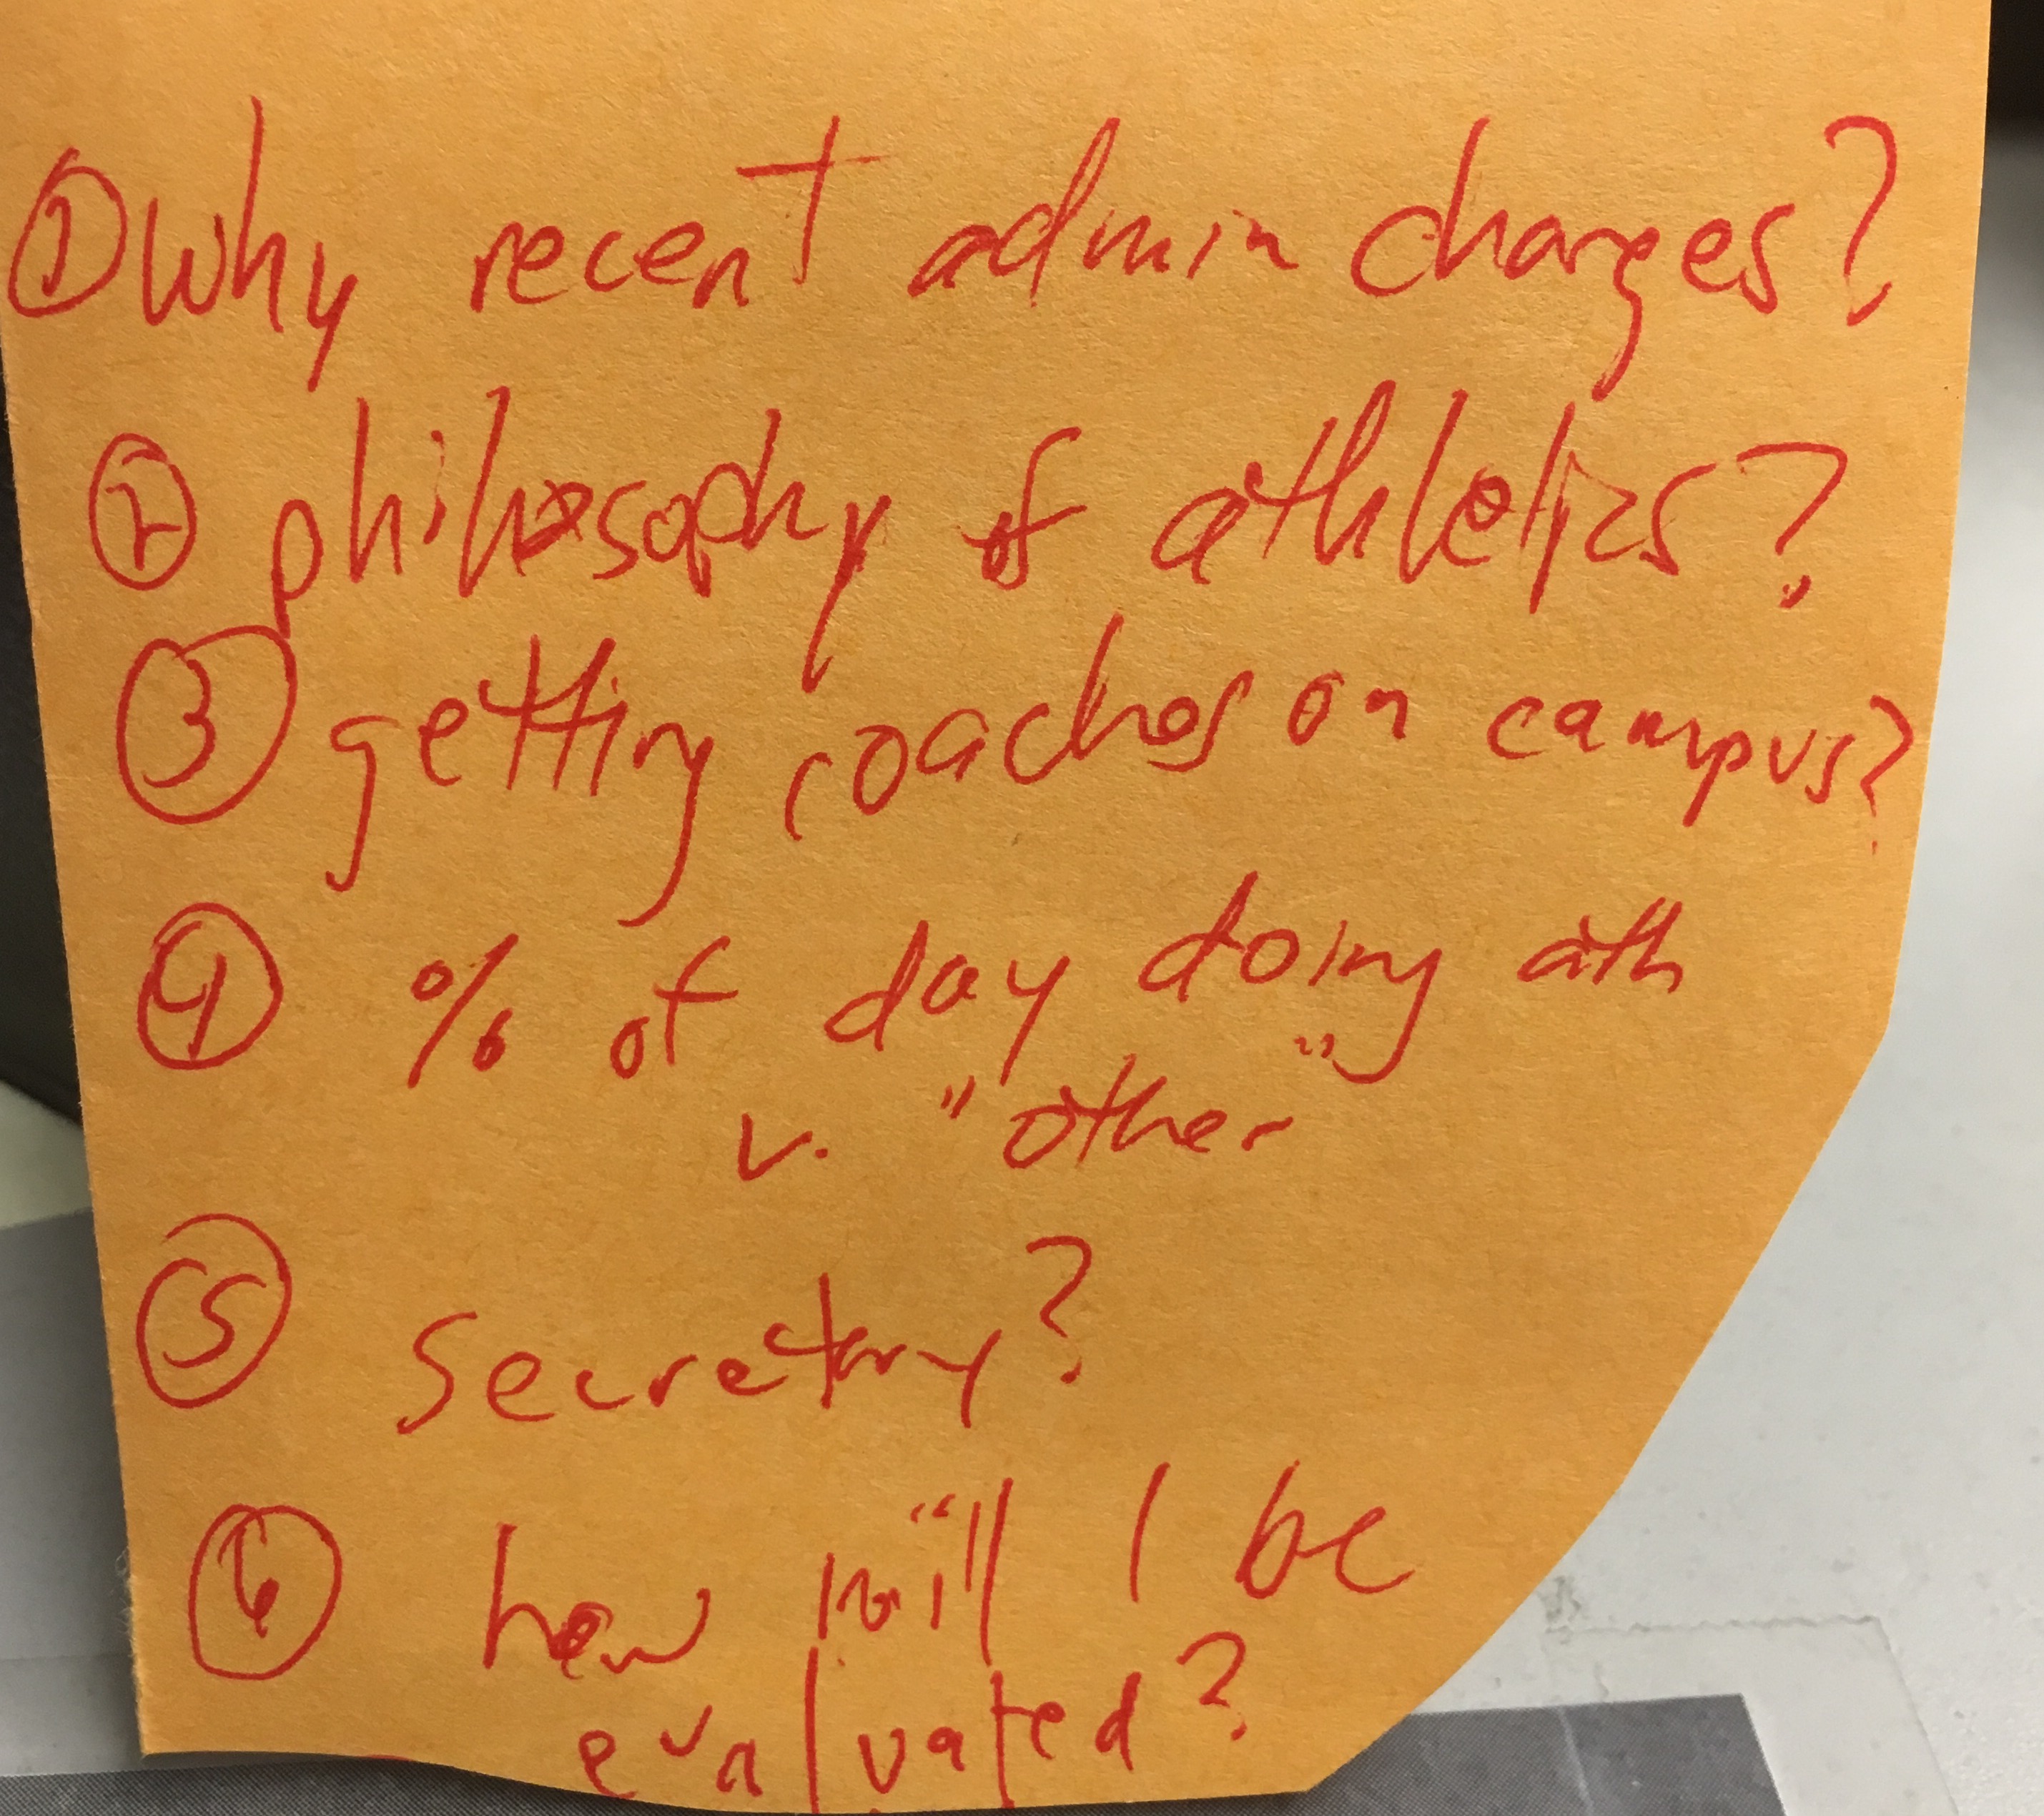 ① Why recent admin changes?
② philosophy of athletics?
③ getting coaches on campus?
④ % of day doing ath
v. "other"
⑤ Secretary?
⑥ how will I be
evaluated?